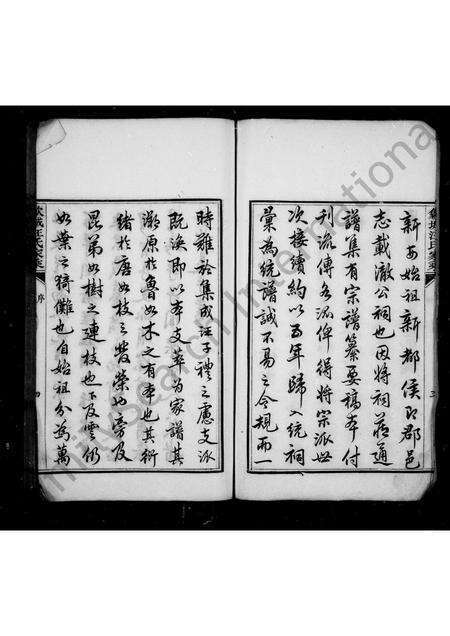 新安始祖新都侯即郡邑
志載澈公祠也因將祠藏通
譜集有宗譜纂要稿本付
刊流傳各派俾得將宗派世
次接續約以五年歸入統祠
彙為統譜誠不易之令規而一
時難於集成汪子禮之慮支派
既渙即以本支萃為家譜其
溯原於魯如木之有本也其衍
緒於唐如枝之發榮也旁及
昆弟如樹之連枝也下及雲仍
如葉之猗儺也自始祖分為萬
FamilySearch International